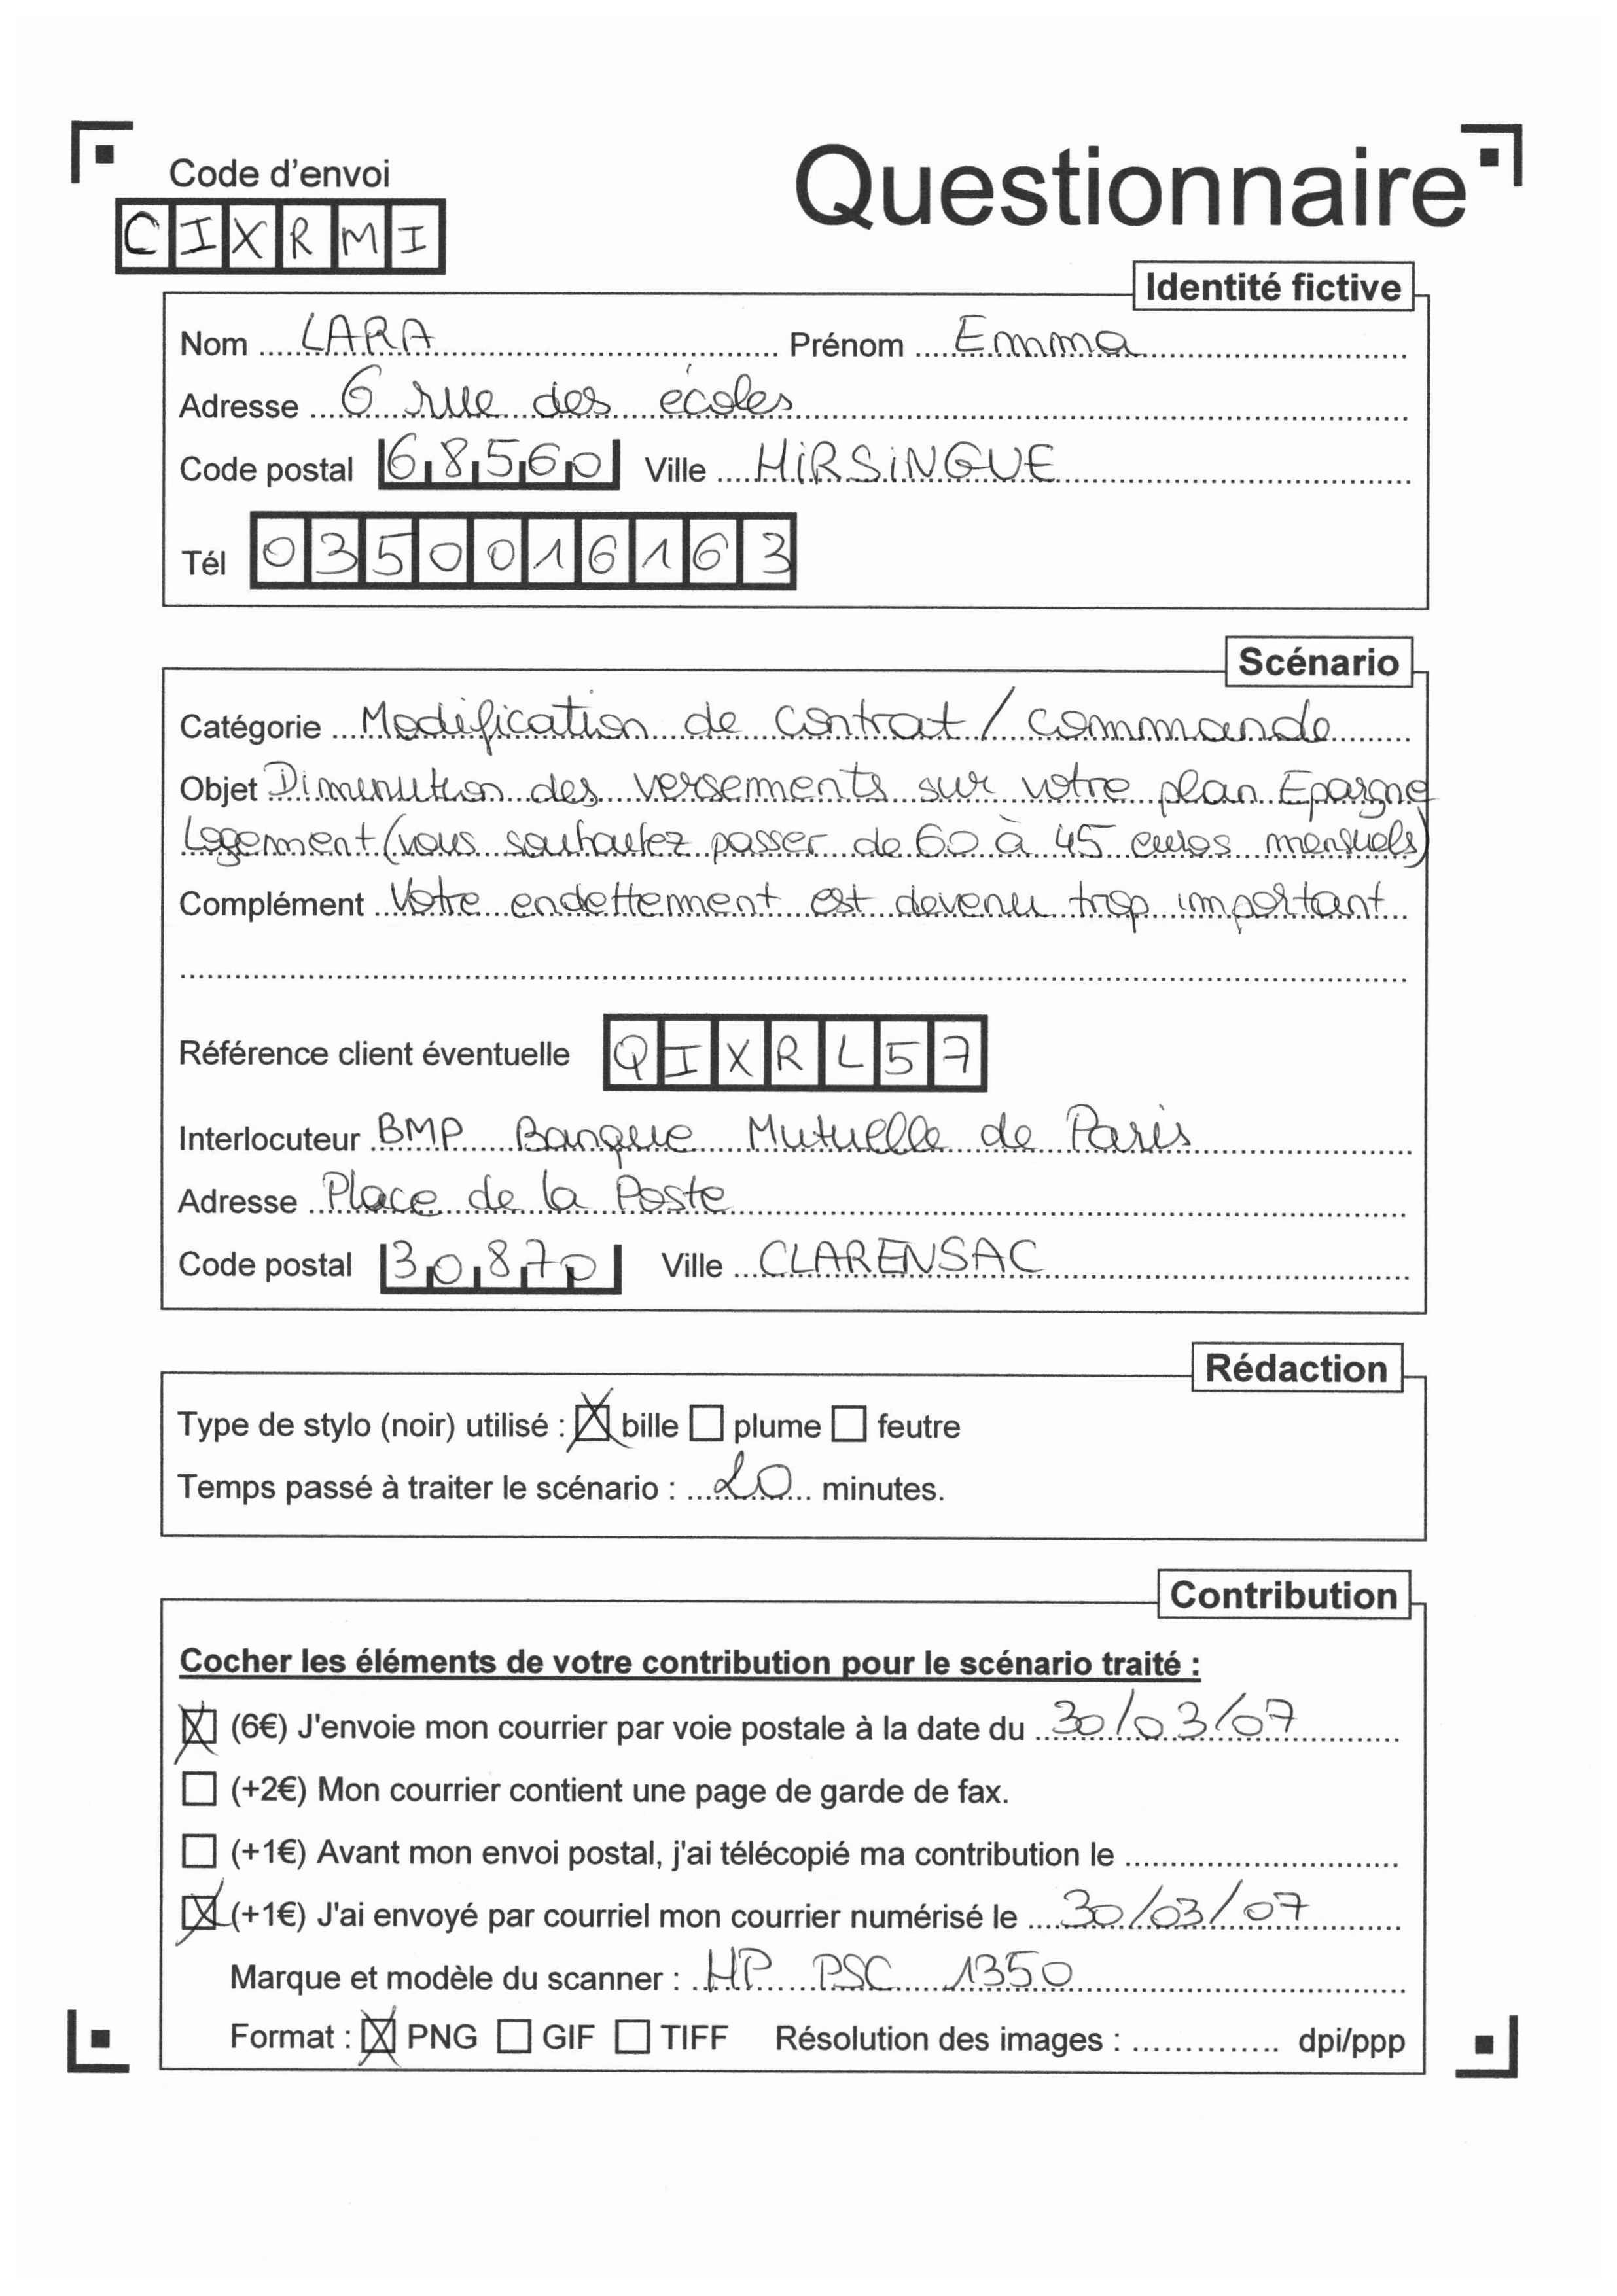 Code d'envoi
Questionnaire
CIXRMI
Identité fictive
Nom LARA Prénom Emma
Adresse 6 rue des écoles
Code postal 68560 Ville HIRSINGUE
Tél 0350016163
Scénario
Catégorie Modification de contrat / commande
Objet Diminution des versements sur votre plan Epargne
Logement (vous souhaitez passer de 60 à 45 euros mensuels)
Complément Votre endettement est devenu trop important
Référence client éventuelle QIXRL57
Interlocuteur BMP Banque Mutuelle de Paris
Adresse Place de la Poste
Code postal 30870 Ville CLARENSAC
Rédaction
Type de stylo (noir) utilisé : bille plume feutre
Temps passé à traiter le scénario : 20 minutes.
Contribution
Cocher les éléments de votre contribution pour le scénario traité :
(6€) J'envoie mon courrier par voie postale à la date du 30/03/07
(+2€) Mon courrier contient une page de garde de fax.
(+1€) Avant mon envoi postal, j'ai télécopié ma contribution le
(+1€) J'ai envoyé par courriel mon courrier numérisé le 30/03/07
Marque et modèle du scanner : HP PSC 1350
Format : PNG GIF TIFF Résolution des images : dpi/ppp